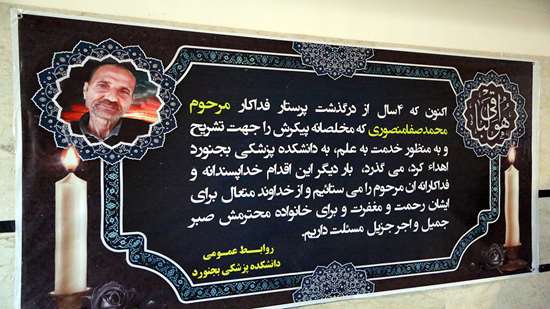 هو الباقی
اکنون که ۴سال از درگذشت پرستار فداکار مرحوم
محمدصفامنصوری که مخلصانه پیکرش را جهت تشریح
و به منظور خدمت به علم، به دانشکده پزشکی بجنورد
اهداء کرد، می گذرد، بار دیگر این اقدام خداپسندانه و
فداکارانه ان مرحوم را می ستانیم و از خداوند متعال برای
ایشان رحمت و مغفرت و برای خانواده محترمش صبر
جمیل و اجر جزیل مسئلت داریم.
روابط عمومی
دانشکده پزشکی بجنورد